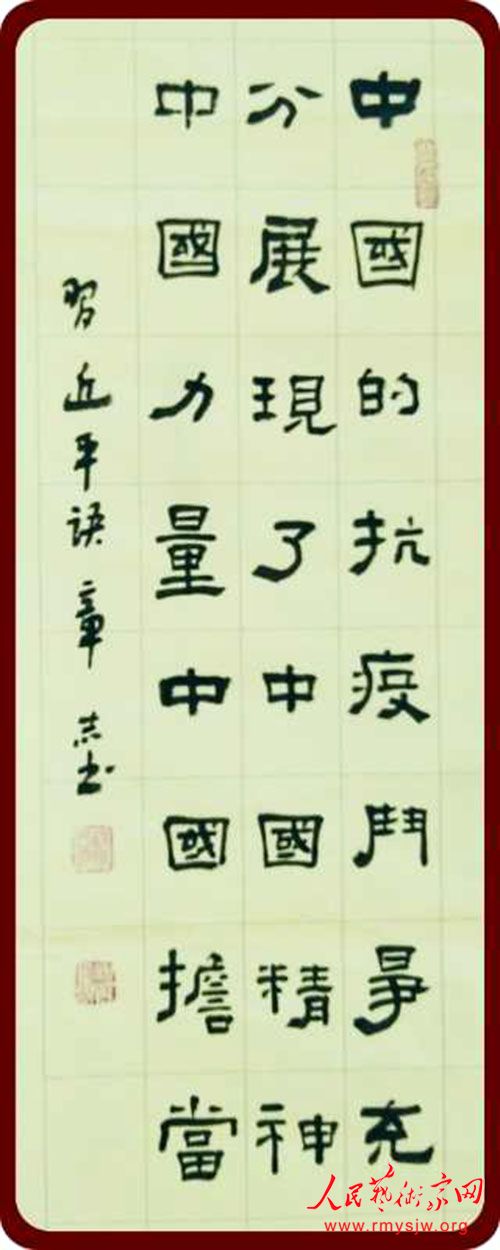 中國的抗疫鬥爭充
分展現了中國精神
中國力量中國擔當
習近平語 章志書
人民藝術家网
www.rmysjw.org